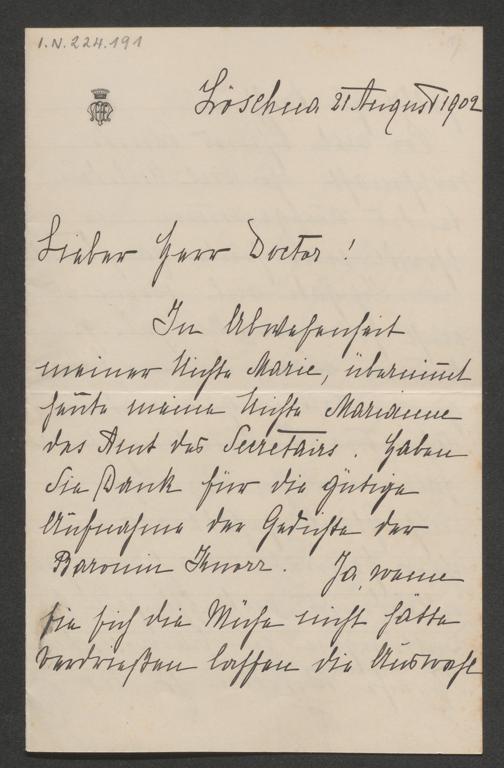 I.N. 224.191
Löschna 21 August 1902
Lieber Herr Doctor!
In Abwesenheit
meiner Nichte Marie, übernim̅t
heute meine Nichte Marianne
das Amt des Secretairs. Haben
Sie Dank für die gütige
Aufnahme der Gedichte der
Baronin Knorr. Ja, wenn
sie sich die Mühe nicht hätte
verdrießen lassen die Auswahl